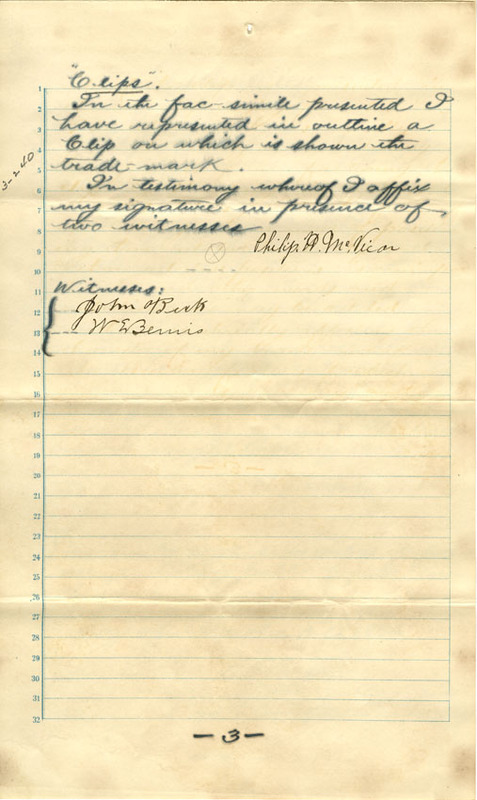 3
"Clips".
In the fac-simile presented I
have represented in outline a
Clip on which is shown the
trade-mark.
In testimony whereof I affix
my signature in presence of
two witnesses
Philip H. McVicar
3-240
Witnesses:
John Beck
W E Bemis
1
2
3
4
5
6
7
8
9
10
11
12
13
14
15
16
17
18
19
20
21
22
23
24
25
26
27
28
29
30
31
32
-3-